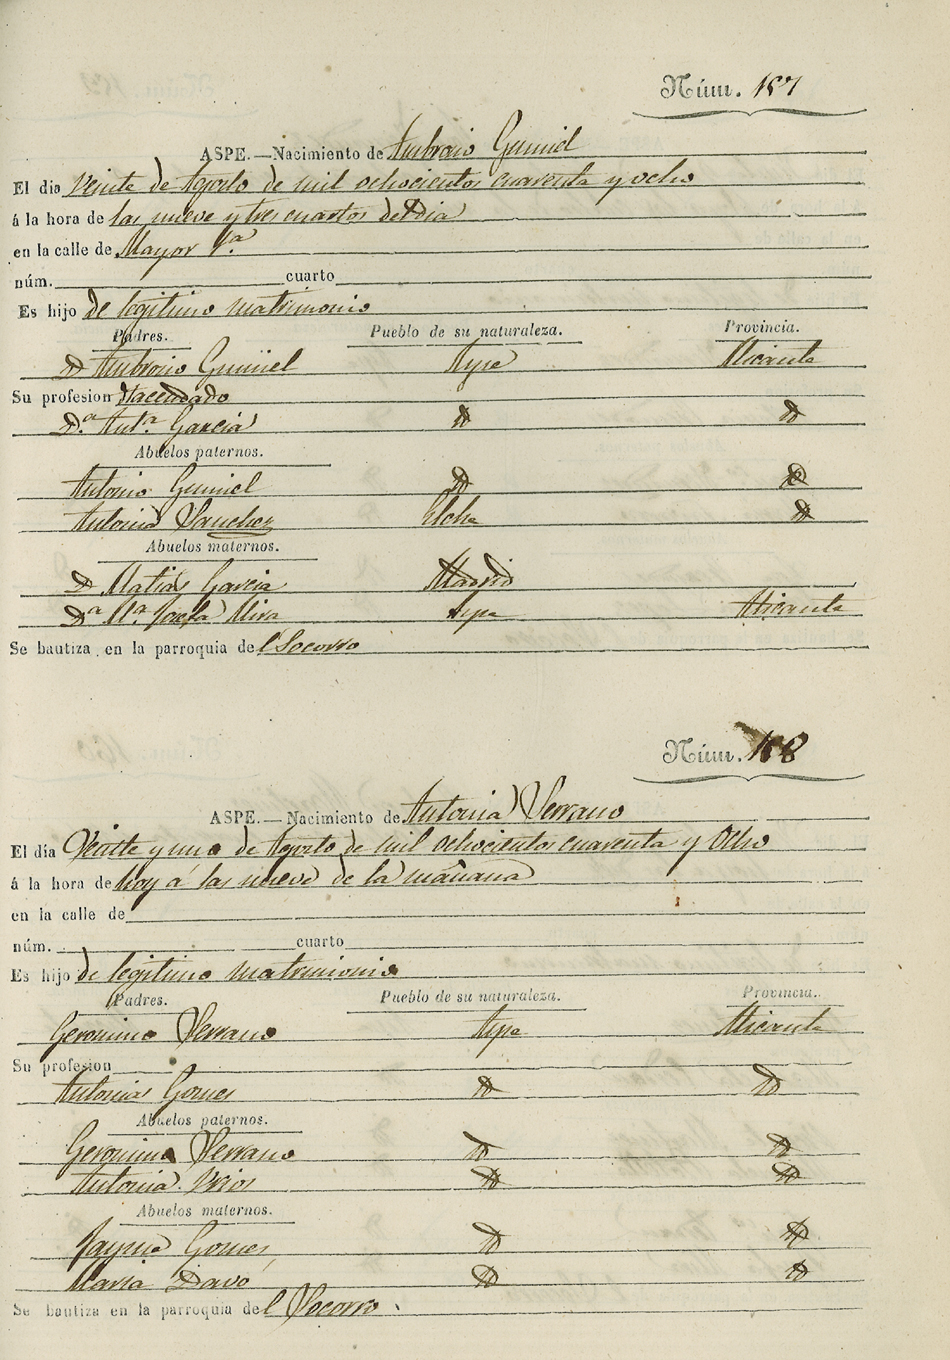 Núm. 187
ASPE.—Nacimiento de Ambrosio Gumiel
El dia Veinte de Agosto de mil ochocientos cuarenta y ocho
á la hora de las nueve y tres cuartos del dia
en la calle de Mayor 1ª
núm. cuarto
Es hijo de legitimo matrimonio
Padres. Pueblo de su naturaleza. Provincia.
Dn Ambrosio Gumiel Aspe Alicante
Su profesion Hacendado
D.ª Antª. Garcia Yd Yd
Abuelos paternos.
Antonio Gumiel Yd Yd
Antonia Sanchez Elche Yd
Abuelos maternos.
Dn Matias Garcia Madrid
Dª Mª Josefa Mira Aspe Alicante
Se bautiza en la parroquia del Socorro
Núm. 188
ASPE.—Nacimiento de Antonia Serrano
El día Veinte y uno de Agosto de mil ochocientos cuarenta y Ocho
á la hora de hoy á las nueve de la mañana
en la calle de
núm. cuarto
Es hijo de legitimo matrimonio
Padres. Pueblo de su naturaleza. Provincia.
Geronimo Serrano Aspe Alicante
Su profesion
Antonia Gomes Yd Yd
Abuelos paternos.
Geronimo Serrano Yd Yd
Antonia Yd Yd
Abuelos maternos.
Jayme Gomes Yd Yd
Maria Davó Yd Yd
Se bautiza en la parroquia del Socorro.